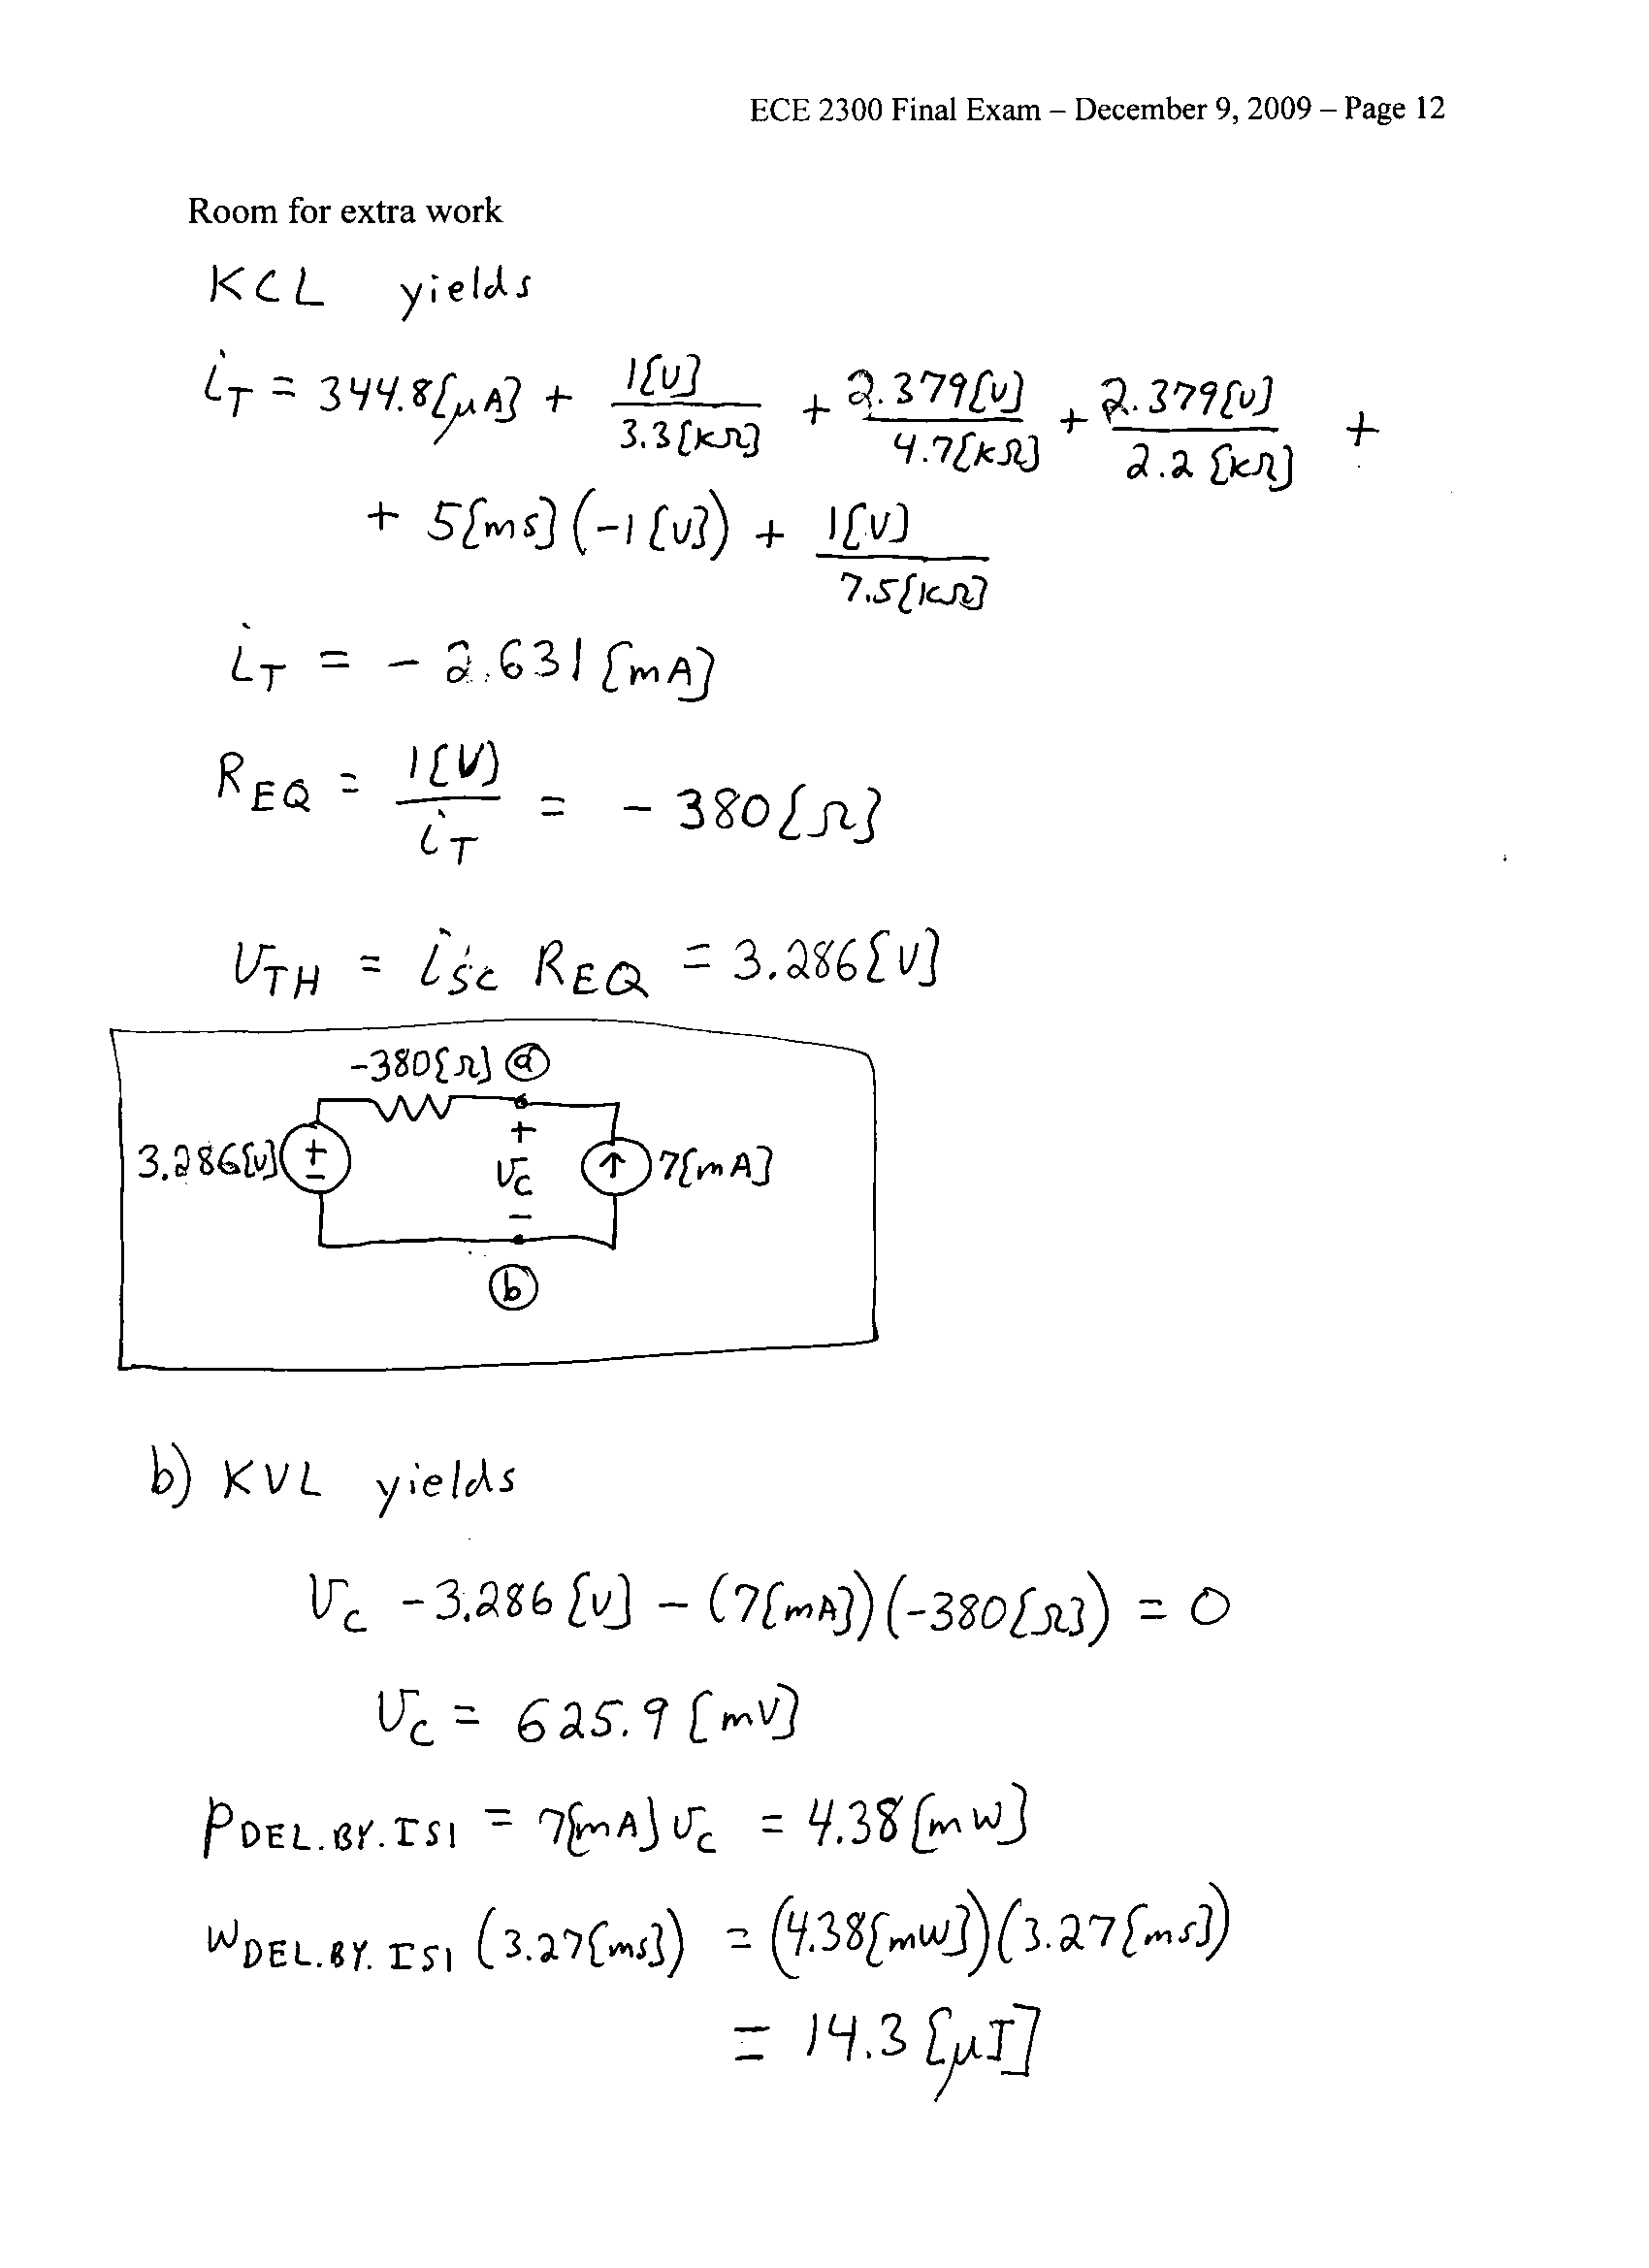 ECE 2300 Final Exam – December 9, 2009 – Page 12
Room for extra work
KCL yields
i_T = 344.8[μA] + 1[V]/3.3[kΩ] + 2.379[V]/4.7[kΩ] + 2.379[V]/2.2[kΩ] +
+ 5[mS](-1[V]) + 1[V]/7.5[kΩ]
i_T = - 2.631[mA]
R_EQ = 1[V]/i_T = - 380[Ω]
v_TH = i_SC R_EQ = 3.286[V]
-380[Ω] a
+
3.286[V] + - v_C ↑ 7[mA]
-
b
b) KVL yields
v_C - 3.286[V] - (7[mA])(-380[Ω]) = 0
v_C = 625.9[mV]
P_DEL.BY.IS1 = 7[mA]v_C = 4.38[mW]
W_DEL.BY.IS1 (3.27[ms]) = (4.38[mW])(3.27[ms])
= 14.3[μJ]